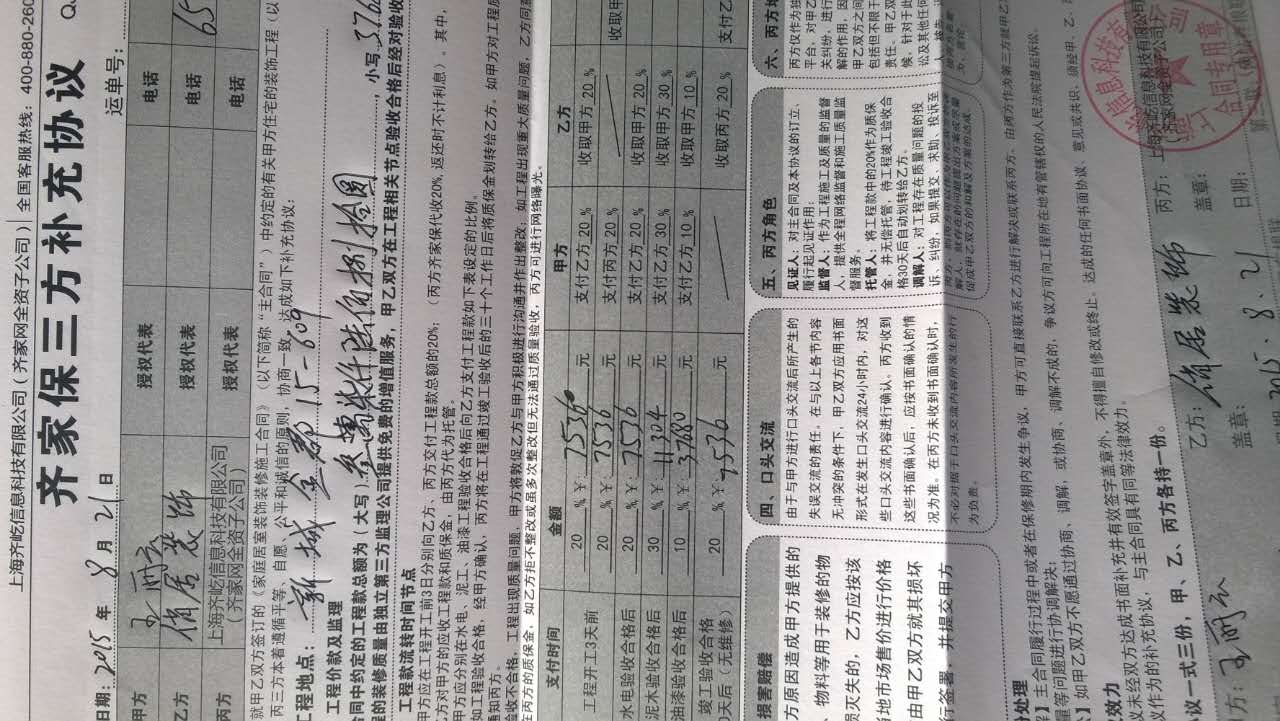 上海齐吃信息科技有限公司（齐家网全资子公司）| 全国客服热线：400-880-260
齐家保三方补充协议
运单号：
日期：2015 年 8 月 21 日
甲方 授权代表 电话
乙方 储居装饰 授权代表 电话
丙方 上海齐吃信息科技有限公司（齐家网全资子公司） 授权代表 电话 65
就甲乙双方签订的《家庭居室装饰装修施工合同》（以下简称“主合同”）中约定的有关甲方住宅的装饰工程（以
丙三方本着遵循平等、自愿、公平和诚信的原则，协商一致，达成如下补充协议：
工程地点： 新城金郡15-609
工程价款及监理
合同中约定的工程款总额为（大写） 小写 3.76
程的装修质量由独立第三方监理公司提供免费的增值服务，甲乙双方在工程相关节点验收合格后经对验收
工程款流转时间节点
甲方应在工程开工前3日分别向乙方、丙方交付工程款总额的20%；（丙方齐家保代收20%，返还时不计利息）。其中，
乙方对甲方的应收工程款和质保金，由丙方代为托管。
甲方应分别在水电、泥工、油漆工程验收合格后向乙方支付工程款如下表设定的比例。
如工程验收合格，经甲方确认，丙方将在工程通过竣工验收后的三个工作日后将质保金划转给乙方。如甲方对工程质
通知丙方。
验收不合格，工程出现质量问题，甲方将敦促乙方与甲方积极进行沟通并作出整改。如工程出现重大质量问题，乙方同意
在丙方的质保金，如乙方拒不整改或虽多次整改但无法通过质量验收，丙方可进行网络曝光。
支付时间 金额 甲方 乙方
工程开工3天前 20 % ￥ 7536 元 支付乙方 20 % 收取甲方 20 %
20 % ￥ 7536 元 支付丙方 20 % 收取甲
水电验收合格后 20 % ￥ 7536 元 支付乙方 20 % 收取甲方 20 %
泥木验收合格后 30 % ￥ 11304 元 支付乙方 30 % 收取甲方 30 %
油漆验收合格后 10 % ￥ 3768 元 支付乙方 10 % 收取甲方 10 %
竣工验收合格 天后（无维修） 20 % ￥ 7536 元 收取丙方 20 % 支付乙
损害赔偿
方原因造成甲方提供的
、物料等用于装修的物
损灭失的，乙方应按该
当地市场售价进行价格
由甲乙双方就其损坏
行签署，并提交甲方
四、口头交流
由于与甲方进行口头交流后所产生的
失误交流的责任。在与以上各节内容
无冲突的条件下，甲乙双方应用书面
形式在发生口头交流24小时内，对这
些口头交流内容进行确认，丙方收到
这些书面确认后，应按书面确认的情
况为准。在丙方未收到书面确认时，
不必对据于口头交流内容所发生的行
为负责。
五、丙方角色
见证人：对主合同及本协议的订立、
履行起见证作用；
监督人：作为工程施工及质量的监督
人，提供全程网络监督和施工质量监
督服务。
托管人：将工程款中的20%作为质保
金，并无偿托管，待工程竣工验收合
格30天后自动划转给乙方。
调解人：对工程存在质量问题的投
诉、纠纷，如果提交、求助、投诉至
促成甲乙双方的和解及方案的达成
六、丙方
丙方仅作为独
平台，对甲乙
关纠纷、进行
解的作用，因
甲乙双方之间
包括但不限于
责任、甲乙双
候，针对于此
讼及其他任何
】主合同履行过程中或者在保修期内发生争议，甲方可直接联系乙方进行解决或联系丙方，由丙方作为第三方就甲乙
量等问题进行协调解决；
】如甲乙双方不愿通过协商、调解，或协商、调解不成的，争议方可向工程所在地有管辖权的人民法院提起诉讼。
效力
议未经双方达成书面补充并有效签字盖章外，不得擅自修改或终止。达成的任何书面协议、意见或共识，须经甲、乙、
作为的补充协议，与主合同具有同等法律效力。
议一式三份，甲、乙、丙方各持一份。
方： 乙方： 储居装饰 丙方： 上海齐吃信息科技有限公司（齐家网全资子公司）
盖章： 盖章：
2015.8.21 日期：
合同专用章